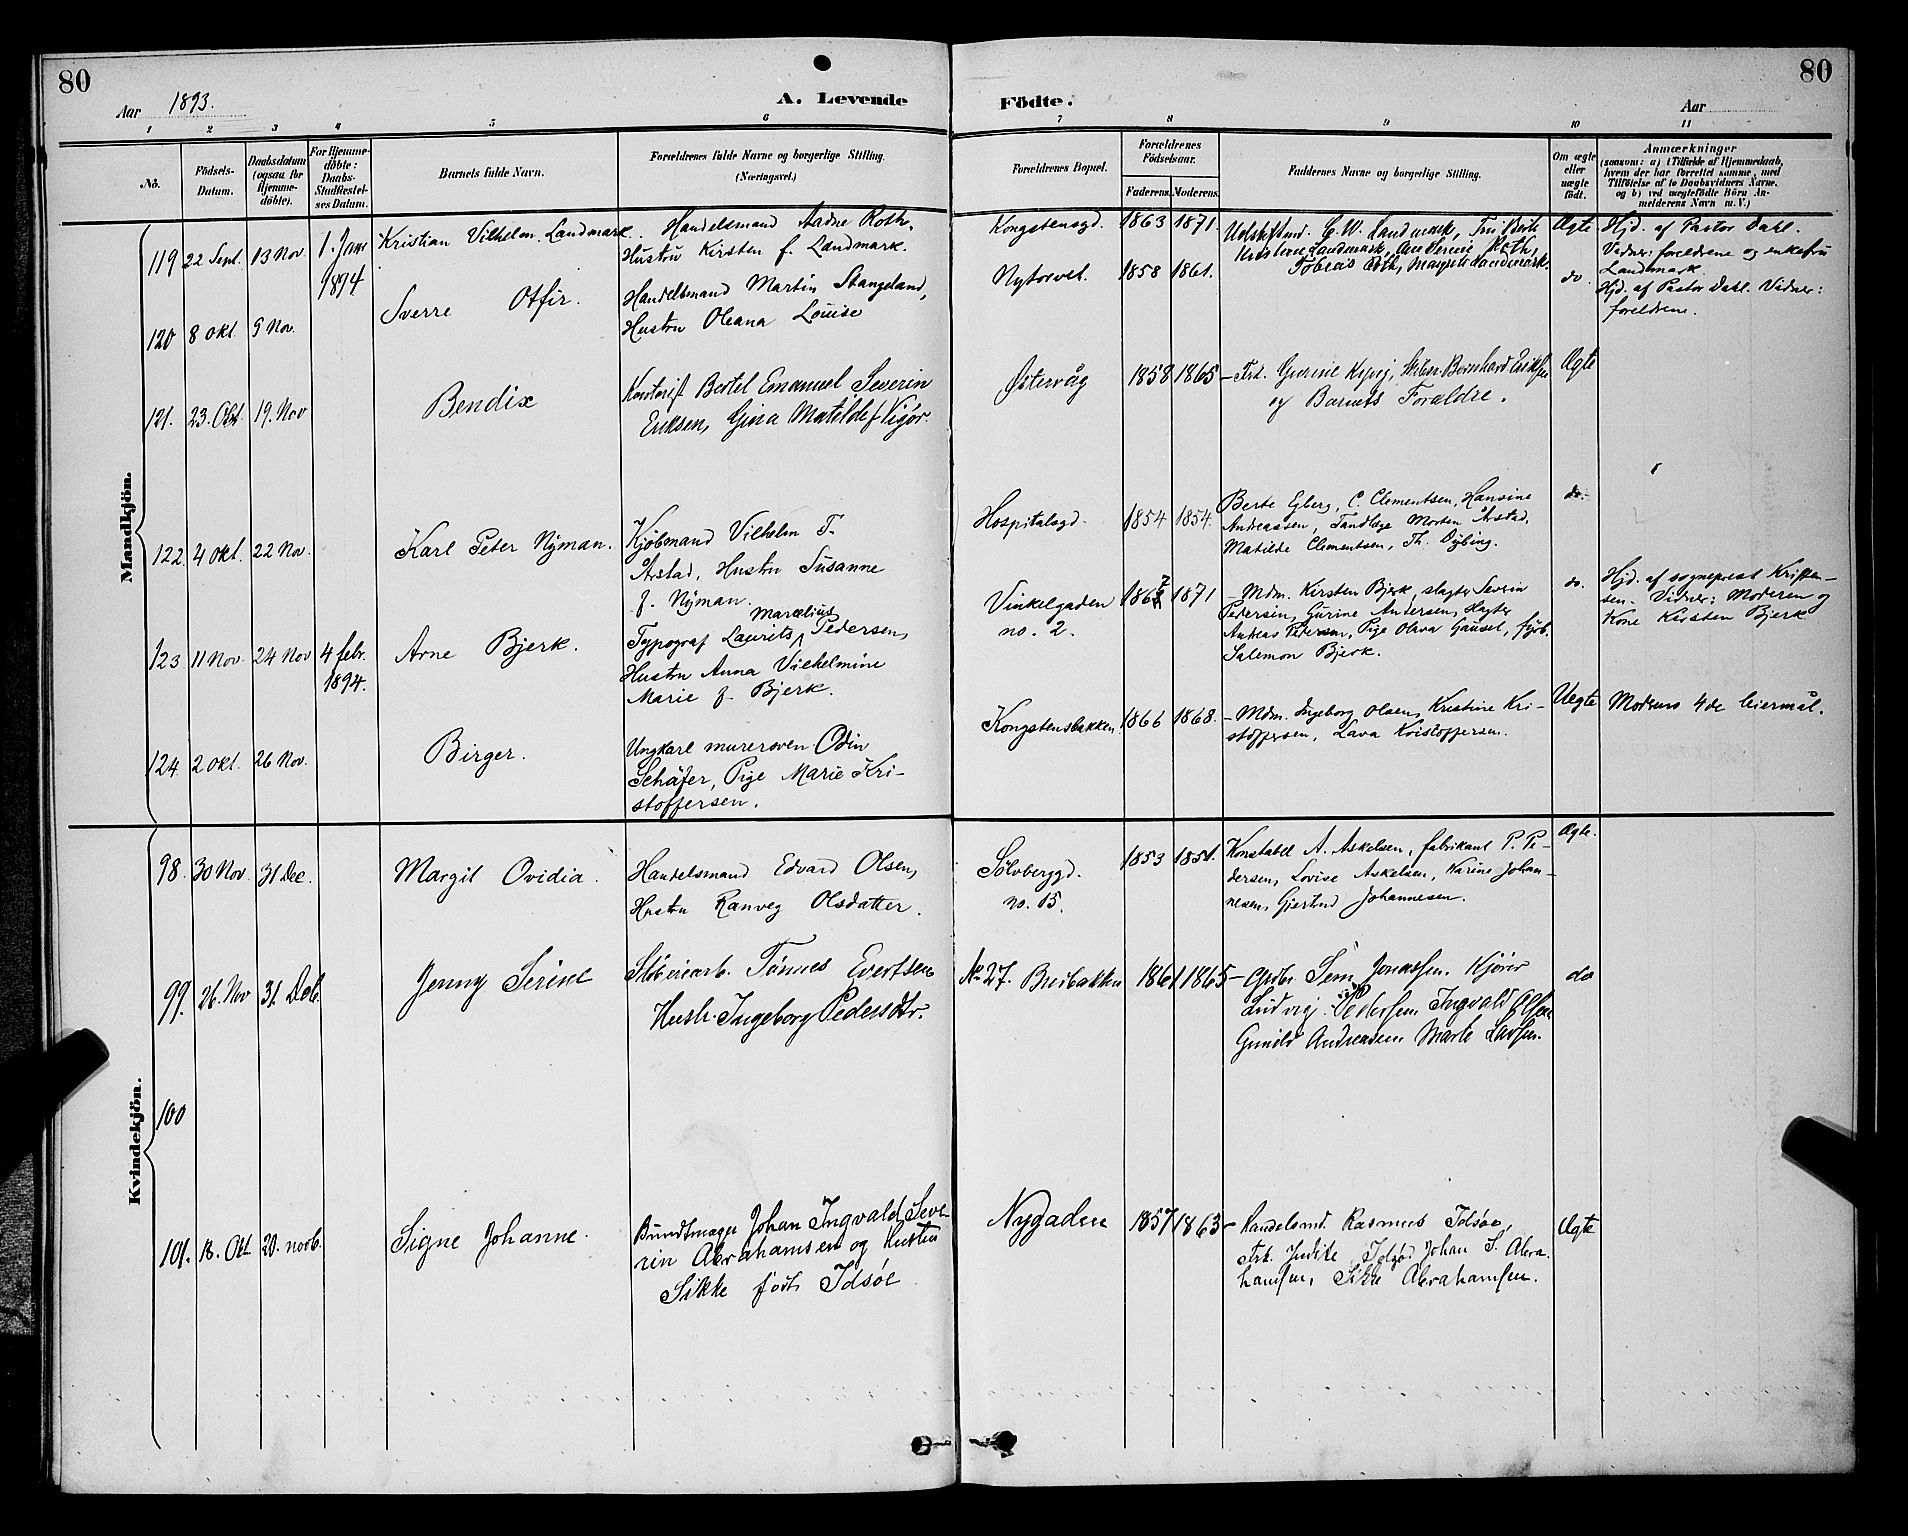 80
Aar 1893.
A. Levende
1 2 3 4 5 6
No.
Födsels-Datum.
Daabsdatum (ogsaa for Hjemme-döbte).
For Hjemme-döbte: Daabs-Stadfæstel-ses Datum.
Barnets fulde Navn.
Forældrenes fulde Navne og borgerlige Stilling.
(Næringsvei.)
Mandkjön.
119 22 Sept. 13 Nov. 1. Jan 1894 Kristian Vilhelm Landmark. Handelsmand Aadne Roth.
Hustru Kirsten f. Landmark.
120 8 Okt. 9 Nov. Sverre Otfir. Handelsmand Martin Stangeland,
Hustru Oleana Louise
121. 23. Okt. 19. Nov Bendix Kontorist Bertel Emanuel Severin
Eriksen, Gina Matilde f Vigør.
122. 4 Okt. 22 Nov. Karl Peter Nÿman. Kjøbmand Vilhelm T.
Årstad, Hustru Susanne
f. Nÿman.
Marcelius
123 11 Nov. 24 Nov 4 febr. 1894. Arne Bjerk. Typograf Laurits Pedersen,
Hustru Anna Vilhelmine
Marie f. Bjerk.
124. 2 Okt. 26 Nov. Birger. Ungkarl murersven Odin
Schäfer, Pige Marie Kri-
stoffersen.
Kvindekjön.
98. 30 Nov. 31 Dec. Margit Ovidia. Handelsmand Edvard Olsen,
Hustru Ranveg Olsdatter.
99. 26. Nov 31. Deb. Jenny Serine Støberiarb. Tønnes Evertsen
Hustr. Ingeborg Pedersdtr.
100
101. 18. Okt. 20. novb. Signe Johanne. Bundtmager Johan Ingvald Seve
rin Abrahamsen og Hustru
Sikke født Idsøe
80
Födte.
Aar
7 8 9 10 11
Forældrenes Bopæl.
Forældrenes Födselsaar.
Faderens. Moderens.
Faddernes Navne og borgerlige Stilling.
Om ægte eller uægte födt.
Anmærkninger
(saasom: a) i Tilfælde af Hjemmedaab,
hvem der har forrettet samme, med
Tilföielse af to Daabsvidners Navne,
og b) ved uægtefödte Börn An-
melderens Navn m. V.)
Kongstensgd. 1863 1871. C. W. Landmark, Berte
Kristine Landmark, Roth,
Tobias Roth, Margrete Landmark.
Ægte Hjd. af Pastor Dahl.
Vidner: foreldrene og enkefru
Landmark.
Nytorvet. 1858 1861. do. Hjd. af Pastor Dahl. Vidner:
foreldrene.
Østervåg 1858 1865 – Frk. Gurine Bernhard Eriksen
og Barnets Forældre.
Ægte
Hospitalsgd. 1854 1854. Berte Egberg, C. Clementsen, Hansine
Andreassen, Tandlæge Morten Årstad,
Matilde Clementsen, Th. Dybing.
do.
Vinkelgaden
no. 2.
1867 1871 – Mdm. Kirsten Bjerk, slagter Severin
Pedersen, Gurine Andersen, slagter
Andreas Pedersen, Pige Olava Gausel, fyrb.
Salemon Bjerk.
do. Hjd. af sogneprest Kristen-
sen. Vidner: Moderen og
Kone Kirsten Bjerk
Kongstensbakken. 1866 1868. – Mdm. Ingeborg Olsen, Kristine Kri-
stoffersen, Lava Kristoffersen.
Uegte Moderens 4de leiermål.
Sølvberggd.
no. 15.
1853 1851. Konstabel A. Askelsen, fabrikant P. Pe-
dersen, Lovise Askelsen, Karine Johan-
nesen, Gjertrud Johannesen.
Ægte.
No 27. Breibakken 1861 1865 – Sem Jonassen. Kjører
Ludvig Pedersen Ingvald Olsen
Gunild Andreasen Marte Larsen.
do
Nygaden 1857 1863 – Handelsmd. Rasmus Idsøe,
Frk. Judite Idsøe Johan S. Abra-
hamsen, Sikke Abrahamsen.
Ægte